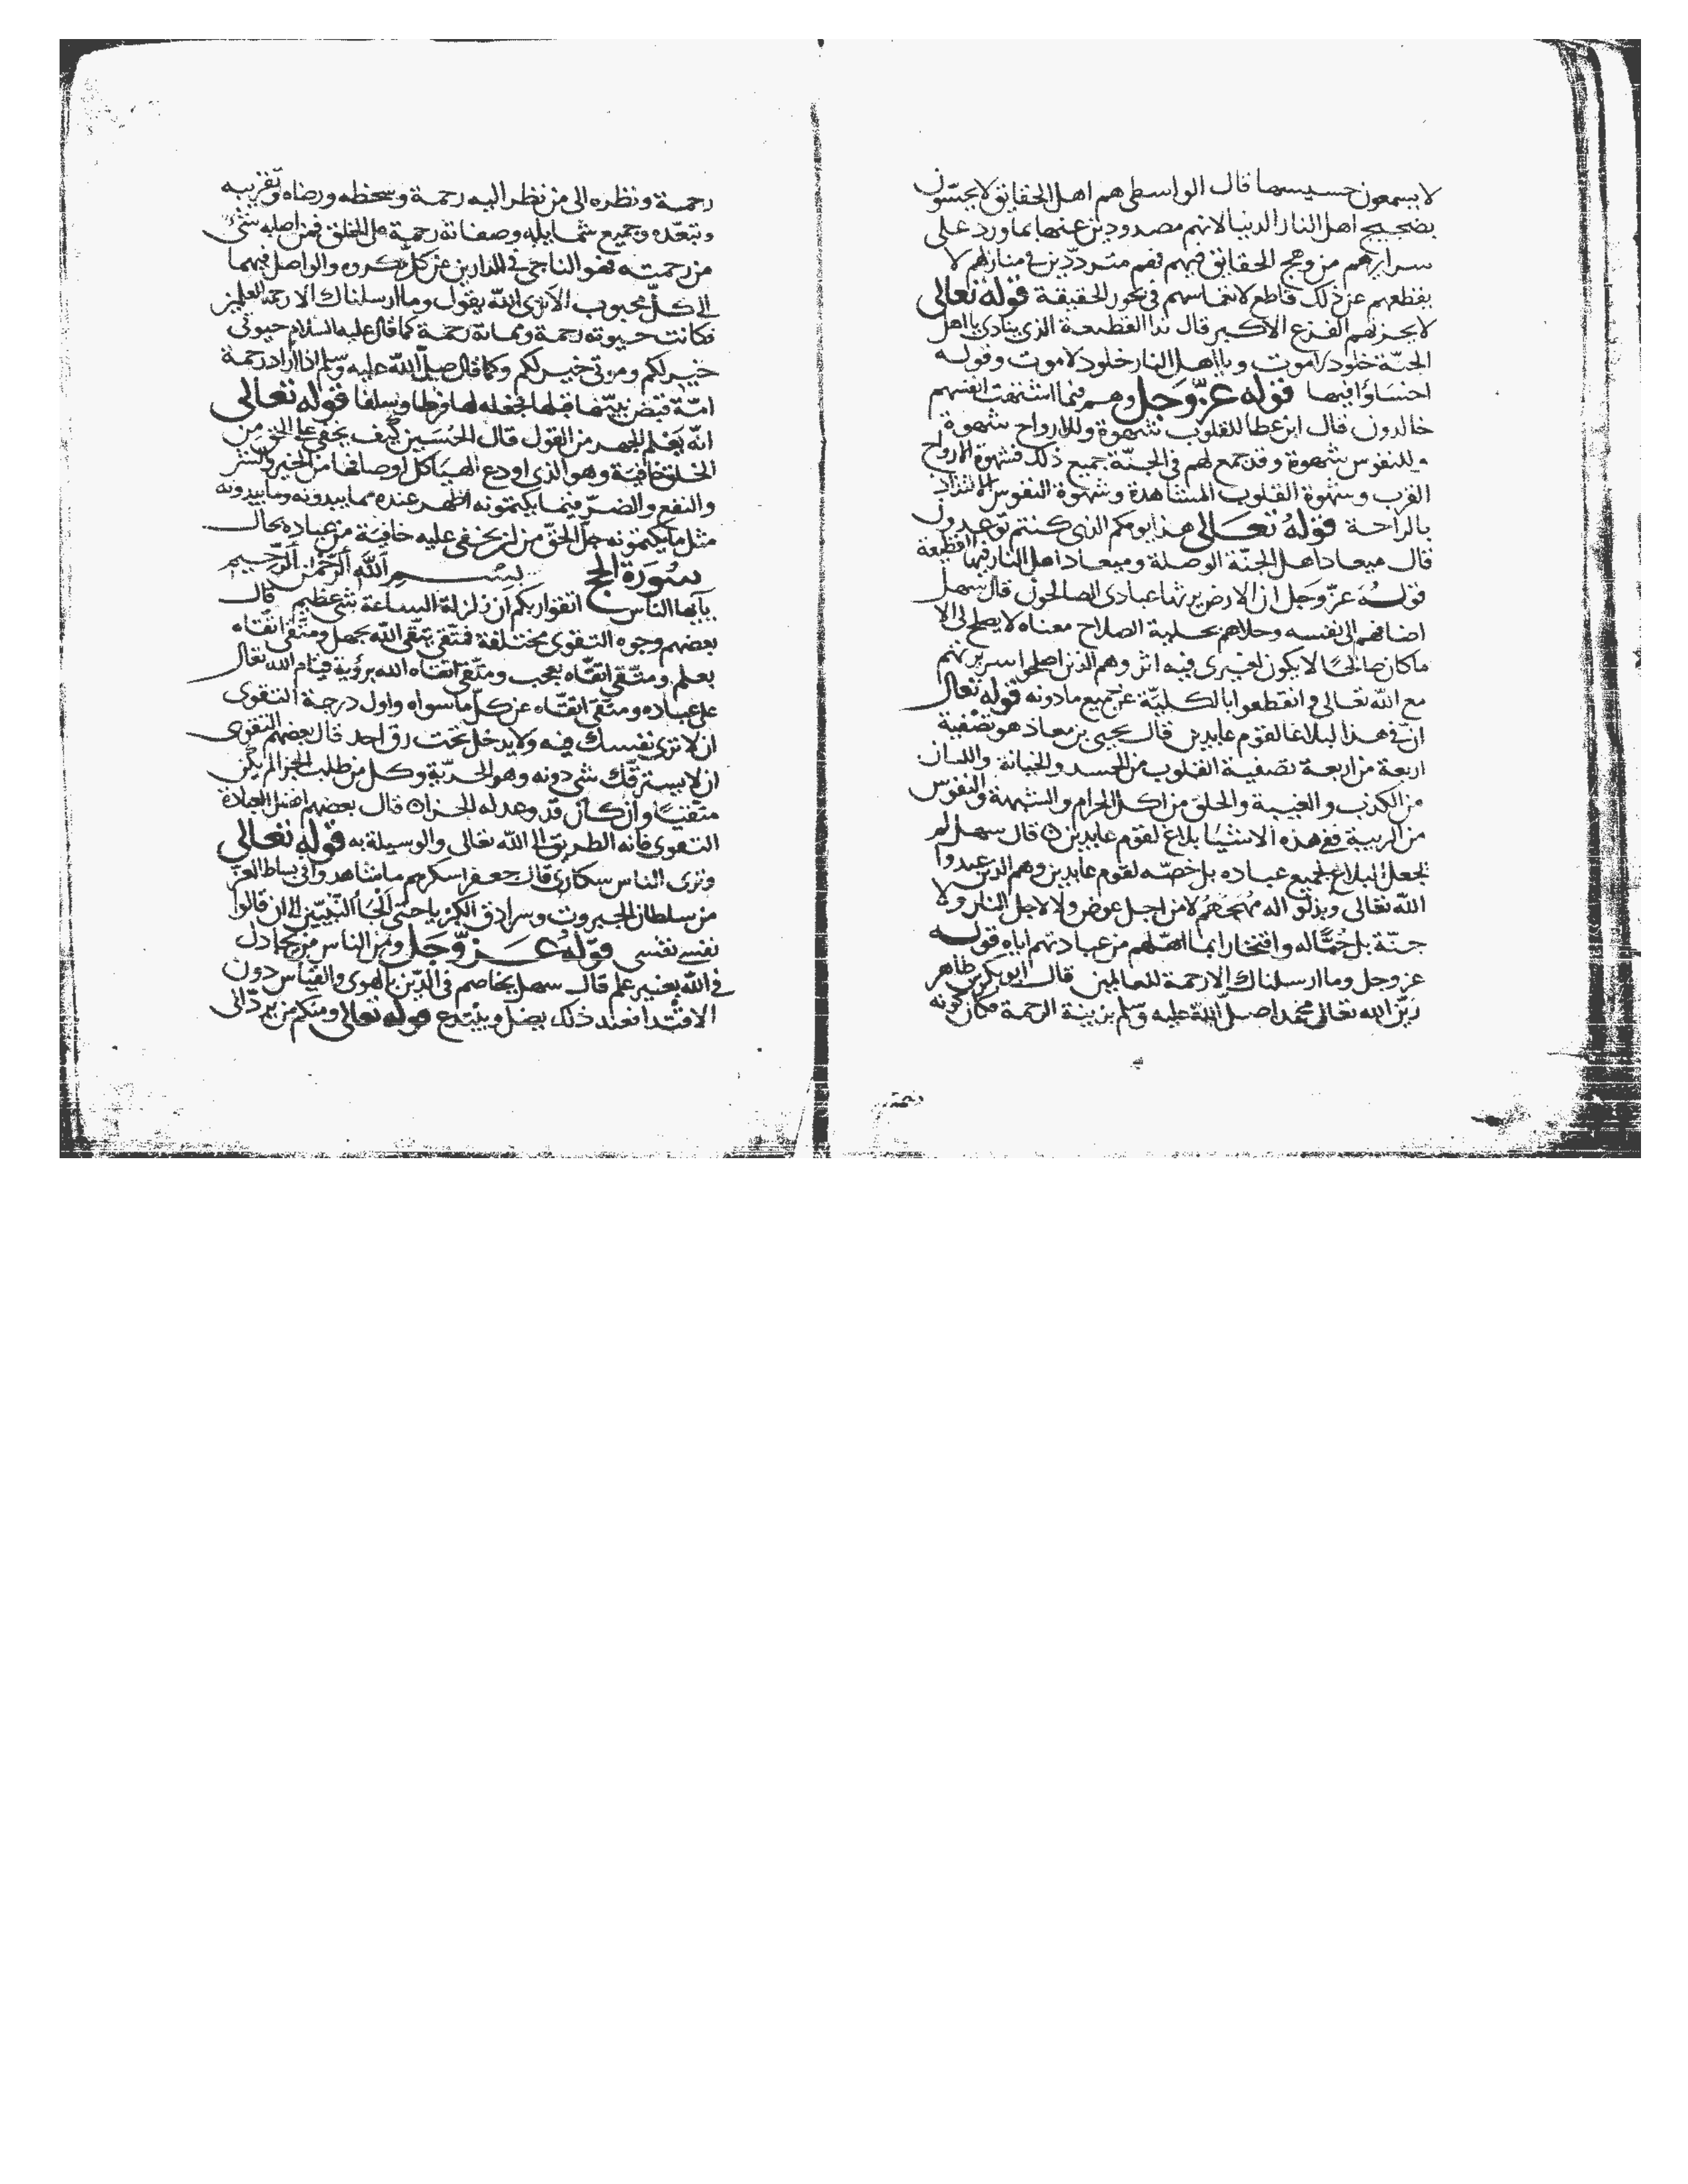 لا يسمعون حسيسها قال الواسطى هم اهل الحقايق لا يحسّون
بضجيج اهل النار الدنيا لانهم مصدودين عنها بما ورد على
سرايرهم من وهج الحقايق فيهم فهم متردّدين فى منازلهم لا
يقطعهم عن ذلك قاطع لانغماسهم فى بحور الحقيقة قوله تعالى
لا يحزنهم الفزع الاكبر قال ندا القطيعة الذى ينادى يا اهل
الجنّة خلود لا موت ويا اهل النار خلود لا موت وقوله
اخسَاوُا فيها قوله عزّ وَجل وهم فيما اشتهت انفسهم
خالدون قال ابن عطا للقلوب شهوة وللارواح شهوة
وللنفوس شهوة وقد جمع لهم فى الجنّة جميع ذلك فشهوة الارواح
القرب وشهوة القلوب المشاهدة وشهوة النفوس الالتذاذ
بالراحة قوله تعَالى هذا يومكم الذى كنتم توعدون
قال ميعاد اهل الجنّة الوصلة وميعاد اهل النار فيها القطيعة
قوله عزّ وجل ان الارض يرثها عبادى الصالحون قال سهل
اضافهم الى نفسه وحلاهم بحلية الصلاح معناه لا يصلح لى الا
ما كان صالحًا لا يكون لغيرى فيه اثر وهم الذين اصلحوا سريرتهم
مع الله تعالى وانقطعوا بالكليّة عن جميع ما دونه قوله تعالى
ان فى هذا لبلاغا لقوم عابدين قال يحيى بن معاذ هو تصفية
اربعة من اربعة تصفية القلوب من الحسد والخيانة واللسان
من الكذب والغيبة والحلق من اكل الحرام والشبهة والنفوس
من الريبة ففى هذه الاشيا بلاغ لقوم عابدين قال سهل لم
يجعل البلاغ لجميع عباده بل خصّه لقوم عابدين وهم الذين عبدوا
الله تعالى وبذلوا له مهجهم لا من اجل عوض ولا لاجل النار ولا
جنّة بل حُبًّا له وافتخارا بما اهّلهم من عبادتهم اياه قوله
عز وجل وما ارسلناك الا رحمة للعالمين قال ابو بكر بن طاهر
زيّن الله تعالى محمّدا صلّى الله عليه وسلم بزينة الرحمة فكان كونه
رحمة ونظره الى من نظر اليه رحمة وسخطه ورضاه وتقريبه
وتبعّده وجميع شمايله وصفاته رحمة على الخلق فمن اصابه شئ
من رحمته فهو الناجى فى الدارين عن كل مكروه والواصل فيهما
الى كلّ محبوب الا ترى الله يقول وما ارسلناك الا رحمة للعالمين
فكانت حيوته رحمة ومماته رحمة كما قال عليه السلام حيوتى
خير لكم وموتى خير لكم وكما قال صلّى الله عليه وسلم اذا اراد رحمة
امّة قبض نبيّها قبلها فجعله لها فرطا وسلفا قوله تعالى
انّه يَعْلم الجهر من القول قال الحُسَين كيف يخفى على الحق من
الخلق خافيَة وهو الذى اودع الهياكل اوصافها من الخير والشر
والنفع والضرّ فيما يكتمونه اظهر عنده مما يبدونه وما يبدونه
مثل ما يكتمونه جلّ الحقّ من ان يخفى عليه خافيَة من عباده بحال
سُورَة الحج بِسْم اللهِ الرَّحمٰن الرَّحيم
يأيها الناس اتقوا ربكم ان زلزلة الساعة شئ عظيم قال
بعضهم وجوه التقوى مختلفة فمتّقى يتّقى الله بجهل ومتّقى اتقاه
بعلم ومتّقى اتقاه بعجب ومتّقى اتقاه الله برؤية قيام الله تعالى
على عباده ومتّقى اتقاه عن كلّ ما سواه واول درجة التقوى
ان لا ترى نفسك فيه ولا يدخل تحت رق احد قال بعضهم التقوى
ان لا يسترقّك شى دونه وهو الحريّة وكل من طلب الجزا لم يكن
متقيًا وان كان قد وعد له الجزا قال بعضهم اصل العبادة
التقوى فانه الطريق الى الله تعالى والوسيلة به قوله تعالى
وترى الناس سكارى قال جعفر اسكرهم ما شاهدوا فى بساط العزّ
من سلطان الجبروت وسرادق الكبريا حتى الجأ النبيّين الى ان قالوا
نفسى نفسى قوله عَزّ وّجَل ومن الناس من يجادل
فى الله بغير علم قال سهل يخاصم فى الدّين بالهوى والقياس دون
الاقتدا فعند ذلك يضل ويبتدع قوله تعالى ومنكم من يردّ الى